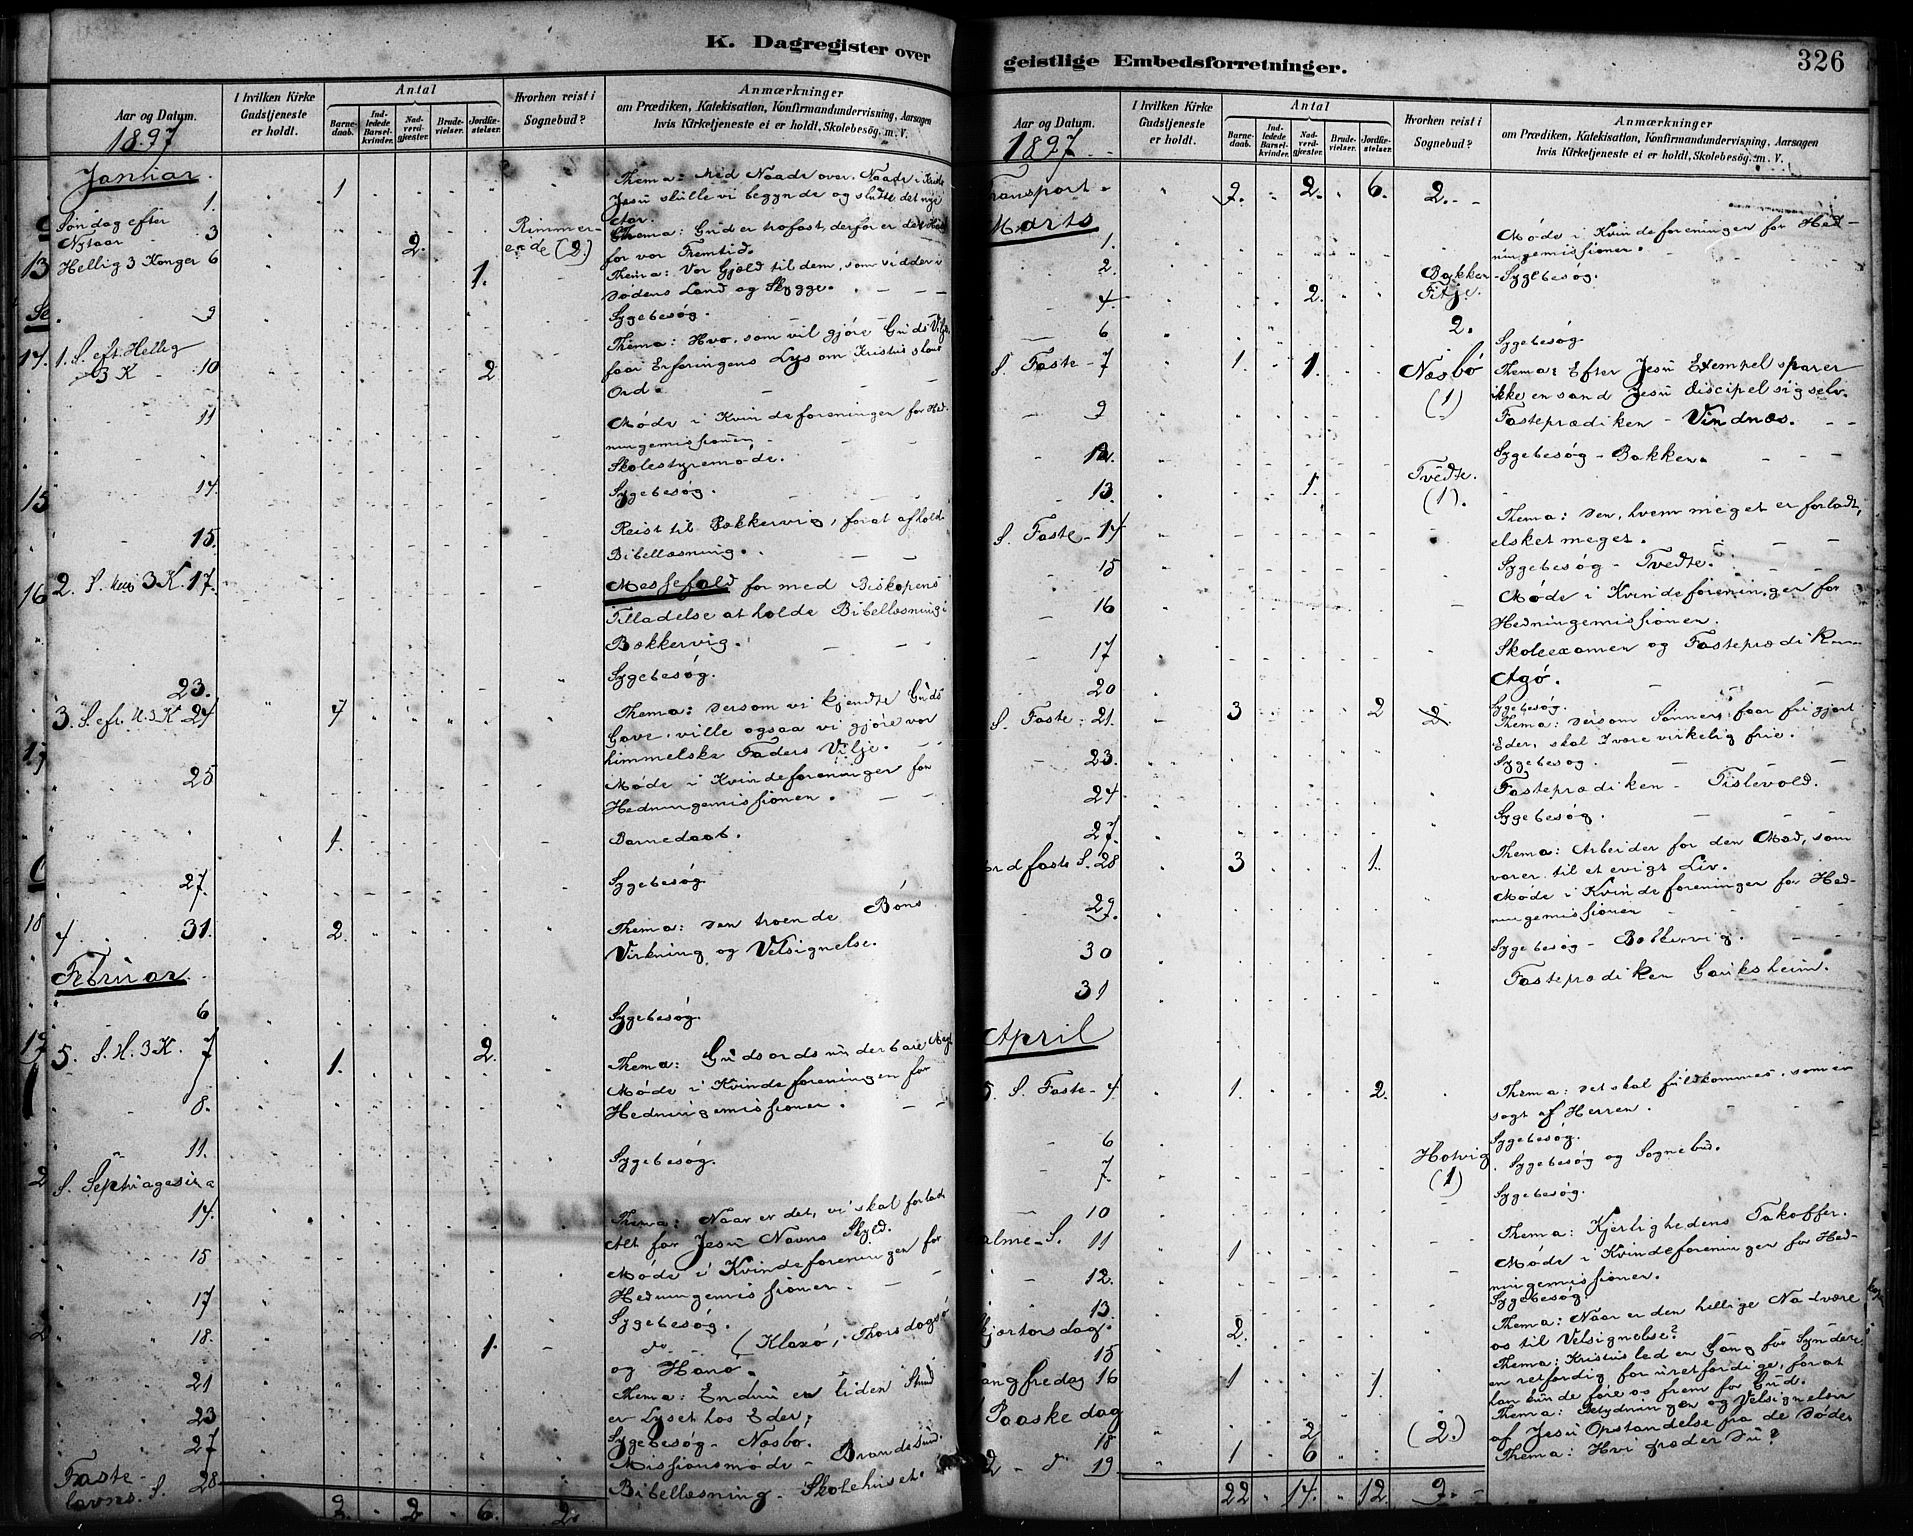 K. Dagregister over
Aar og Datum.
1897
I hvilken Kirke
Gudstjeneste
er holdt.
Antal
Barne-
daab.
Ind-
ledede
Barsel-
kvinder.
Nad-
verd-
gjester.
Brude-
vielser.
Jordfæ-
stelser.
Hvorhen reist i
Sognebud?
Anmærkninger
om Prædiken, Katekisation, Konfirmandundervisning, Aarsagen
hvis Kirketjeneste ei er holdt, Skolebesög, m. V.
Januar
1. 1 Thema: Med Naade over Naade i
Jesu skulle vi begynde og slutte det nye
Aar.
Søndag efter
Nytaar 3 2. Rimmer-
ende (2.) Thema: Gud er trofast, derfor er
for vor Fremtid.
Hellig 3 Konger 6 1. Thema: Vor Gjæld til dem, som sidder i
Dødens Land og Skygge.
9 Sygebesøg.
1. S. eft. Hellig
3 K 10 2 Thema: Hvo, som vil gjøre Guds Vilje
faar Erfaringens Lys om Kristus
Ord.
11 Møde i Kvindeforeningen for Hed-
ningemissionen
Skolestyremøde.
14. Sygebesøg.
15. Reist til Bækkervig, for at afholde
Bibellæsning.
2. S. 3 K. 17. Messefald for med Biskopens
Tilladelse at holde Bibellæsning i
Bækkervig.
23. Sygebesøg.
3. S. eft. H. 3 K 24 4 Thema: Dersom vi kjendte Guds
Gave, ville ogsaa vi gjøre vor
himmelske Faders Vilje.
25 Møde i Kvindeforeningen for
Hedningemissionen.
1. Barnedaab.
27. Sygebesøg
4 31. 2. Thema: Den troende Bøns
Virkning og Velsignelse.
Februar
6 Sygebesøg.
5. S. H. 3 K. 7 1. 2. Thema: Guds ords underbare
8. Møde i Kvindeforeningen for
Hedningemissionen.
11. Sygebesøg.
S. Septuagesima
14. Thema: Naar er det, vi skal forlade
Alt for Jesu Navns Skyld.
15 Møde i Kvindeforeningen for
Hedningemissionen.
17 Sygebesøg.
18. 1. do (Klaxø, Thorsdagsø
og Hanø.
21 Thema: Endnu en liden Stund
er Lyset hos Eder;
23 Sygebesøg - Næsbø.
27 Missionsmøde - Brandesund.
Faste-
lavns S. 28 Bibellæsning - Skolehuset.
2 6. 2.
geistlige Embedsforretninger.
326
Aar og Datum.
1897
I hvilken Kirke
Gudstjeneste
er holdt.
Antal
Barne-
daab.
Ind-
ledede
Barsel-
kvinder.
Nad-
verd-
gjester.
Brude-
vielser.
Jordfæ-
stelser.
Hvorhen reist i
Sognebud?
Anmærkninger
om Prædiken, Katekisation, Konfirmandundervisning, Aarsagen
hvis Kirketjeneste ei er holdt, Skolebesög, m. V.
Transport 7. 2. 6. 2.
Marts
1. Møde i Kvindeforeningen for Hed-
ningemissionen.
2. Bakker Sygebesøg.
4. 2. Fitje.
2.
6 Sygebesøg
S. Faste - 7 1. 1. Næsbø
(1) Thema: Efter Jesu Exempel sparer
ikke en sand Jesu Discipel sig selv.
9 Fasteprædiken - Vindnæs.
12. Sygebesøg - Bakken.
13. 1. Tvedte.
(1).
S. Faste - 14 Thema: Den, hvem meget er forladt,
elsket meget.
15 Sygebesøg - Tvedte.
16 Møde i Kvindeforeningen for
Hedningemissionen.
17 Skoleexamen og Fasteprædiken
Agø.
20 Sygebesøg.
S. Faste 21. 3 2 2. Thema: Dersom Sønnen faar frigjort
Eder, skal I være virkelig frie.
23. Sygebesøg.
24 Fasteprædiken - Tislevold.
27. Sygebesøg.
Midfaste S. 28 3 1. Thema: Arbeider for den Mad, som
varer til et evigt Liv.
29. Møde i Kvindeforeningen for Hed-
ningemissionen
30 Sygebesøg -
31 Fasteprædiken
April
5. S. Faste - 4 1. 2. Thema: Det skal fuldkommes, som er
sagt af Herren.
6 Sygebesøg.
7. Hotvig
(1) Sygebesøg og Sognebud.
10 Sygebesøg.
Palme-S. 11 1 Thema: Kjerlighedens Takoffer.
12. Møde i Kvindeforeningen for Hed-
ningemissionen.
13 Sygebesøg.
Skjærtorsdag.
15 2. Thema: Naar er den hellige Nadvere
os til Velsignelse?
Langfredag 16 1 1 Thema: Kristus led en Gang for Syndere
en retfærdig for uretfærdige, for at
han kunde føre os frem for Gud.
1 Paaskedag
18 2 (2.) Thema: Betydningen og Velsignelsen
af Jesu Opstandelse fra de Døde.
2 - d 19 1 6 Thema: Hvi græder Du?
22 14. 12